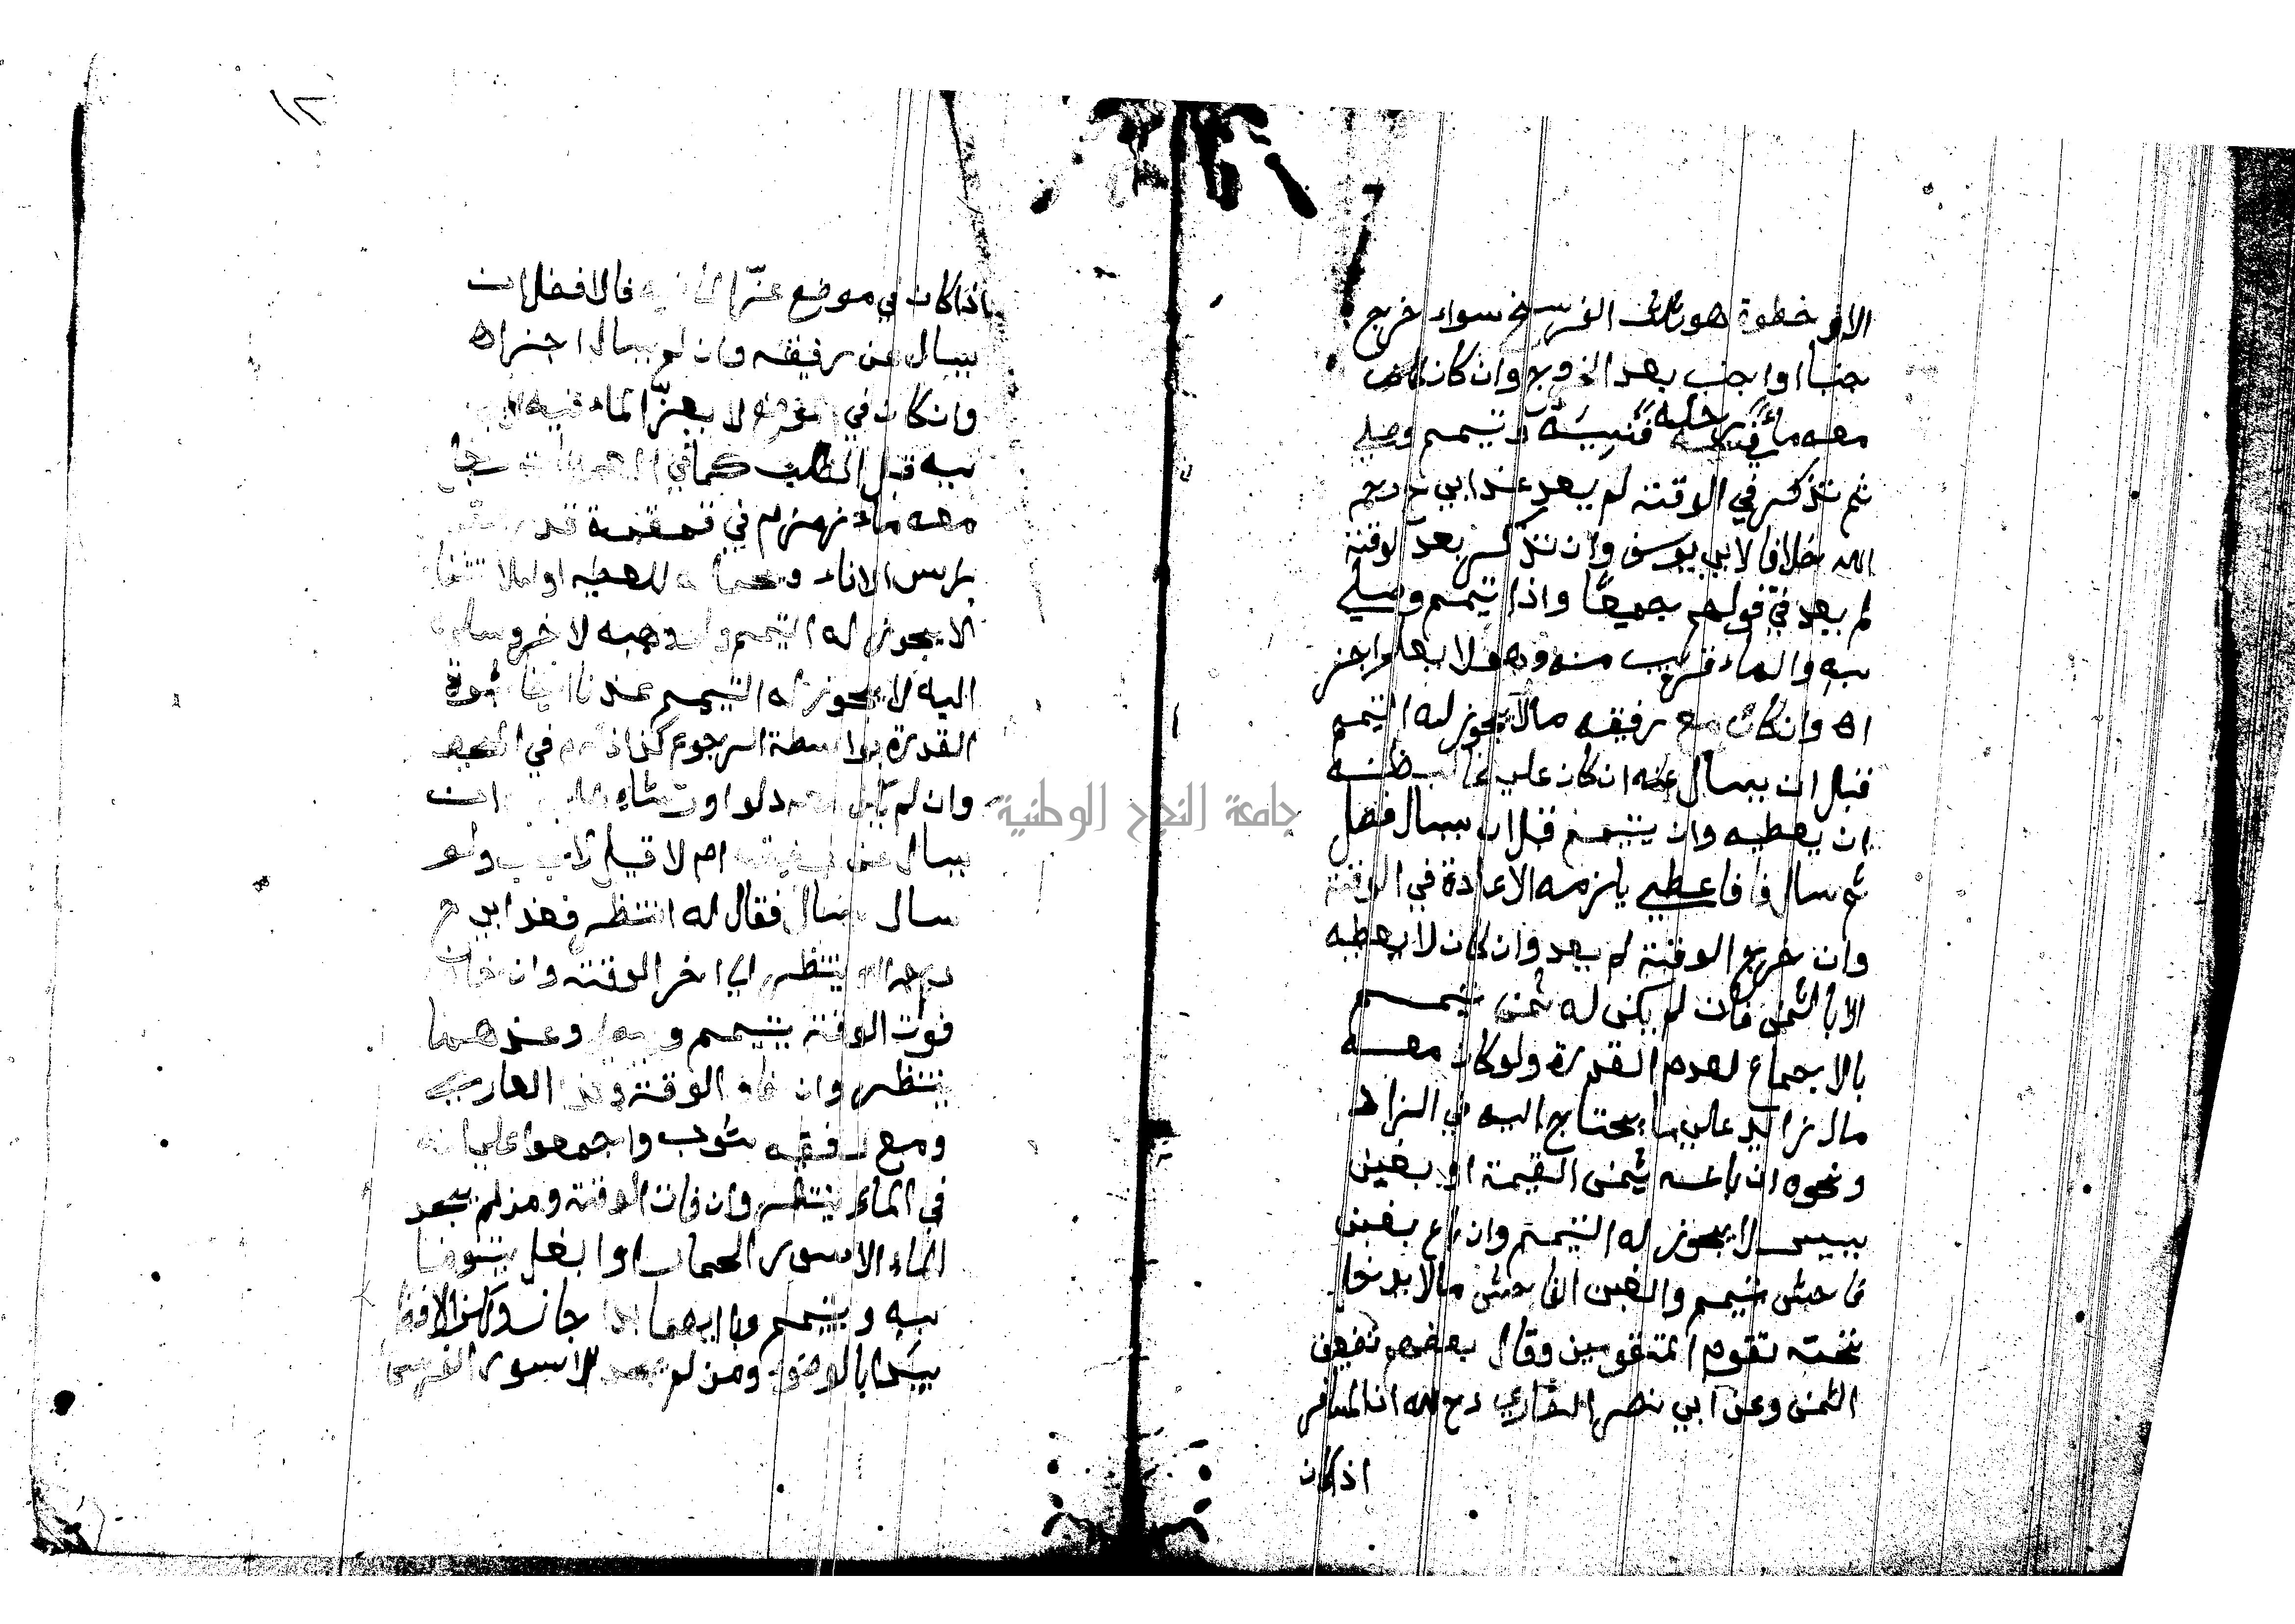 الاف خطوة هو ثلث الفرسخ سواء خرج
جنبا او اجنب بعد الخروج وان كان
معه ماء في رحله فنسيه وتيمم وصلي
ثم تذكر في الوقت لم يعد عند ابي ح رحم
الله خلافا لابي يوسف وان تذكر بعد الوقت
لم يعد في قولهم جميعا واذا تيمم وصلي
به والماء قريب منه وهو لا يعلم اجز
اه وان كان مع رفيقه ما لا يجوز له التيمم
قبل ان يسال عنه ان كان علي غالب ظنه
ان يعطيه وان يتيمم قبل ان يسال فصل
ثم سال فا فاعطي يلزمه الاعادة في الوقت
وان خرج الوقت لم يعد وان كان لا يعطيه
الا بالثمن فان لم يكن له ثمن تيمم
بالاجماع لعدم القدرة ولو كان معه
مال زايد علي ما يحتاج اليه في الزاد
ونحوه ان باعه بثمن القيمة او بغبن
يسير لا يجوز له التيمم وان باع بغبن
فاحش تيمم والغبن الفاحش ما لا يدخل
تحت تقوم المتقومين وقال بعضهم تضعيف
الثمن وعن ابي نصر الصفاري رح الله ان المسافر
اذا كان
١٢
اذا كان في موضع عز الماء فيه فالافضل ان
يسال عن رفيقه وان لم يسال اجزاه
وان كان في موضع لا يعز الماء فيه لا
به قبل الطلب كما في
معه ماء زمزم في قمقمة قد
براس الاناء للعطيه او للاستشفاء
لا يجوز له التيمم ولو وهبه لاخر وسلمه
اليه لا يجوز له التيمم عندنا
القدرة بواسطة الرجوع كذا ذكر في
وان لم يكن معه دلو او رشاء هل يجب ان
يسال عن رفيقه ام لا قيل لا يجب ولو
سال فقال له انتظر فعند ابي ح
رحمه الله ينتظر الي اخر الوقت وان خاف
فوت الوقت يتيمم ويصلي وعندهما
ينتظر وان فات الوقت وكذا العاري
ومع رفيقه ثوب واجمعوا علي انه
في الماء ينتظر وان فات الوقت ومن لم يجد
الماء الا سور الحمار او البغل يتوضا
به ويتيمم وبايهما بدا جاز ولكن الافضل
يبدا بالوضوء ومن لم يجد الا سور الفرس
جامعة النجاح الوطنية